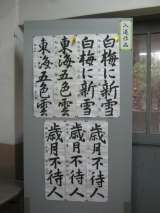 入選作品
白梅に新雪
白梅に新雪
東海五色雲
東海五色雲
歳月不待人
歳月不待人
歳月不待人